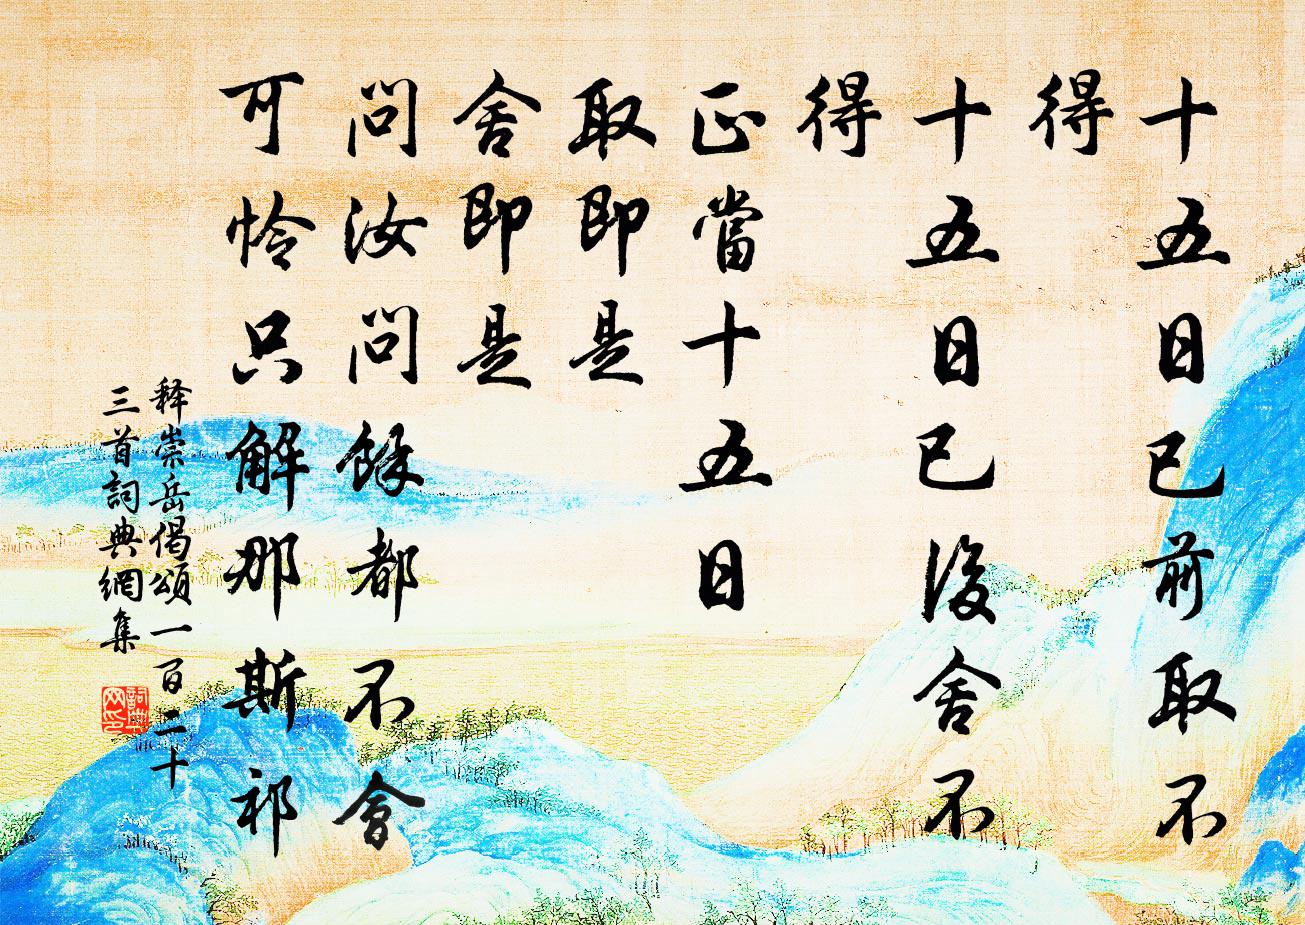 十五日已前取不
得
十五日已後舍不
得
正當十五日
取即是
舍即是
問汝問餘都不會
可怜只解那斯祁
释崇岳偈頌一百二十
三首詞典網集
詞典网印